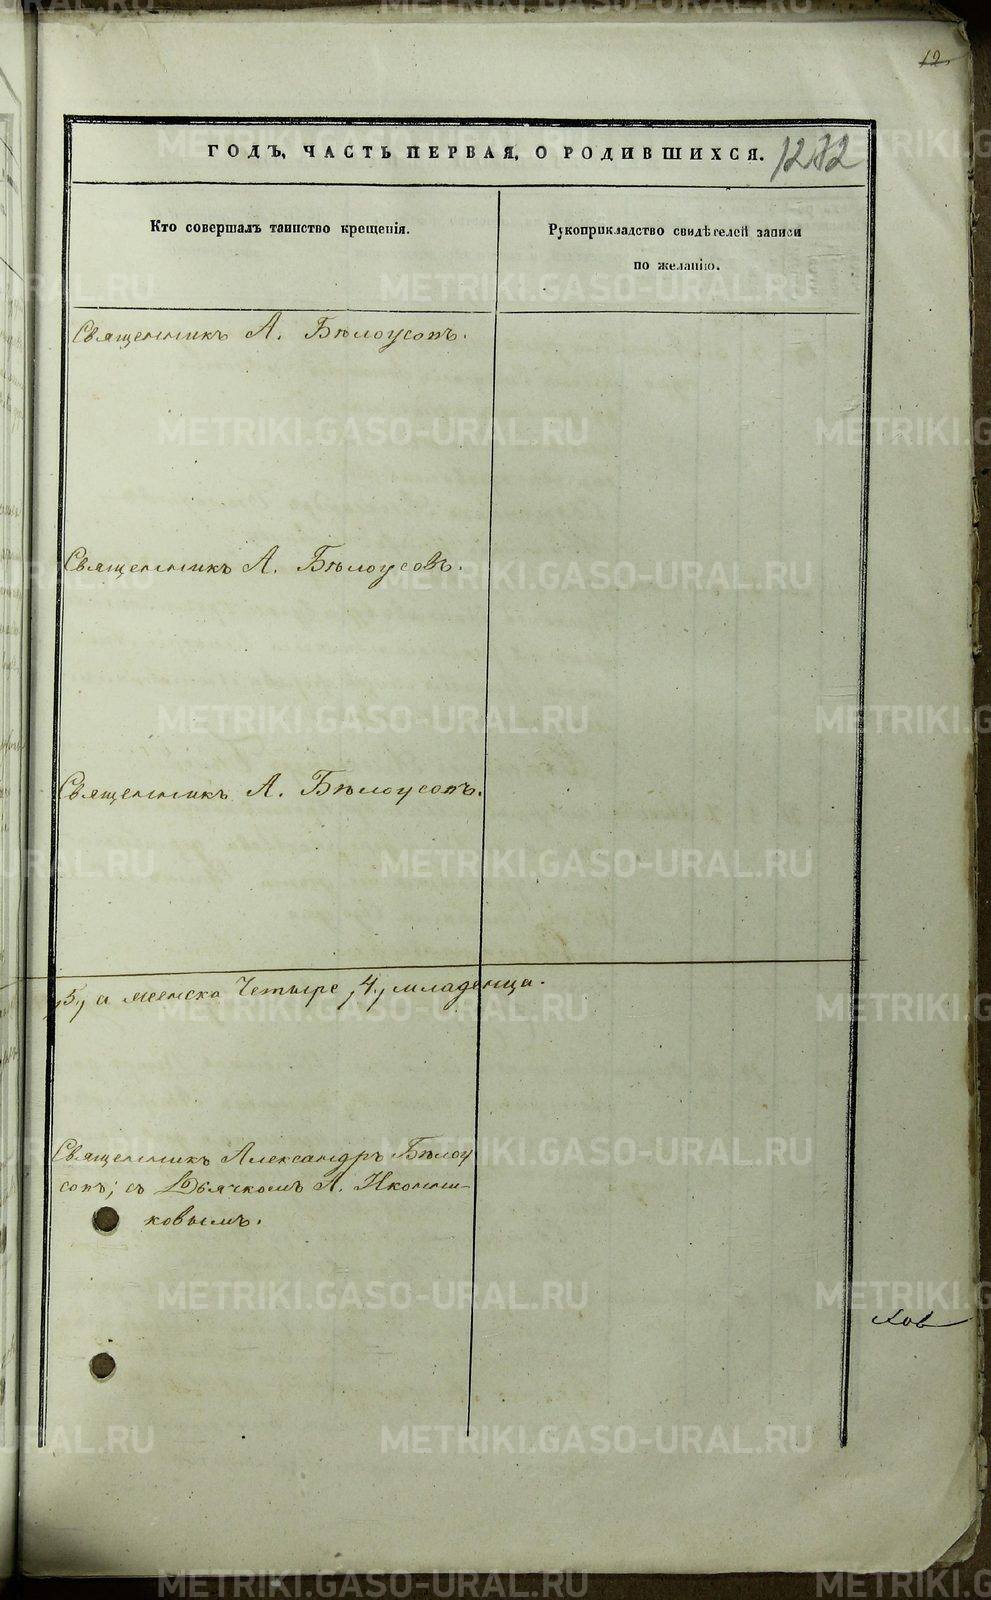 12
ГОДЪ, ЧАСТЬ ПЕРВАЯ, О РОДИВШИХСЯ. 1232
Кто совершалъ таинство крещенія.
Рукоприкладство свидѣтелей записи
по желанію.
Священникъ А. Бѣлоусовъ.
Священникъ А. Бѣлоусовъ.
Священникъ А. Бѣлоусовъ.
,5, а женска Четыре ,4, младенца.
Священникъ Александръ Бѣлоу
совъ; съ Дьячкомъ А. Иконни-
ковымъ.
ков
METRIKI.GASO-URAL.RU